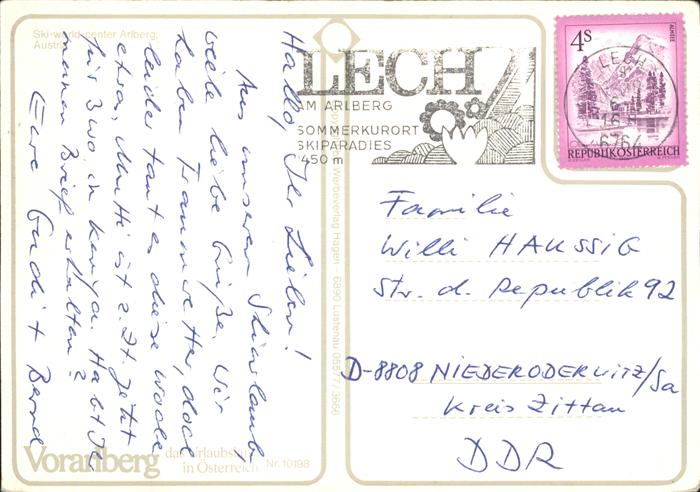 Ski-world-center Arlberg,
Austria
Hallo, Ihr Lieben!
Aus unserem Skiurlaub
viele liebe Grüße. Wir
haben Traumwetter, doch
leider taut es diese Woche
etwas. Mutti ist z. Zt. jetzt
für 3 Wo. in Kenya. Habt Ihr
meinen Brief erhalten?
Eure Gudi + Bernd
Vorarlberg
das Urlaubsland
in Österreich
Nr. 10198
Werbeverlag Hagen · 6890 Lustenau 05577/3668
LECH
AM ARLBERG
SOMMERKURORT
SKIPARADIES
1450 m
4S
ALMSEE
REPUBLIK ÖSTERREICH
LECH
6764
Familie
Willi HAUSSIG
Str. d. Republik 92
D-8808 NIEDERODERWITZ/Sa
Kreis Zittau
DDR